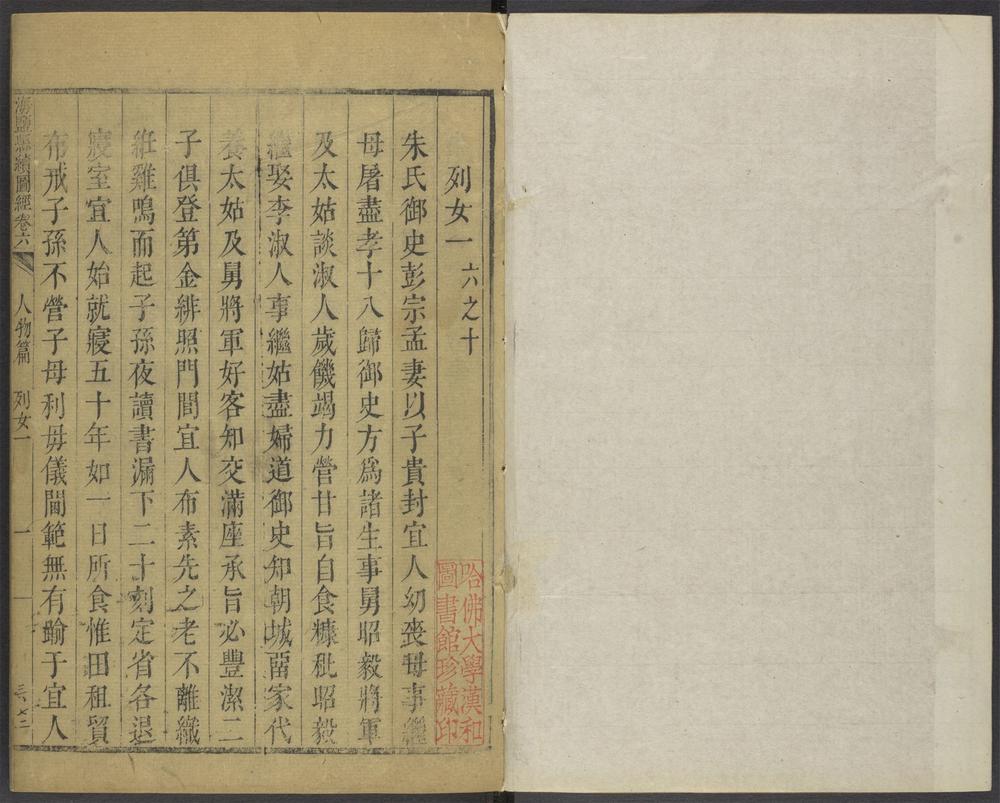 列女一 六之十
朱氏御史彭宗孟妻以子貴封宜人幼喪母事繼
母屠盡孝十八歸御史方爲諸生事舅昭毅將軍
及太姑談淑人歲饑竭力營甘旨自食糠秕昭毅
繼娶李淑人事繼姑盡婦道御史知朝城畱家代
養太姑及舅將軍好客知交滿座承旨必豐潔二
子俱登第金緋照門閭宜人布素先之老不離織
絍雞鳴而起子孫夜讀書漏下二十刻定省各退
寢室宜人始就寢五十年如一日所食惟田租貿
布戒子孫不營子母利毋儀閫範無有踰于宜人
海鹽縣續圖經卷六 人物篇 列女一 一
哈佛大學漢和
圖書館珍藏印